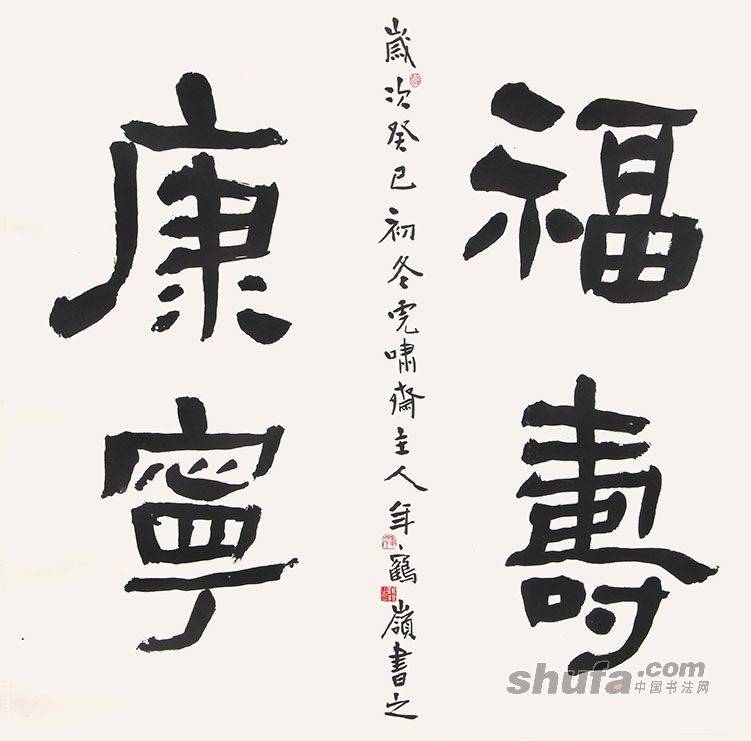 福壽
康寧
歲次癸巳初冬虎嘯齋主人年鶴嶺書之
shufa.com
中国书法网